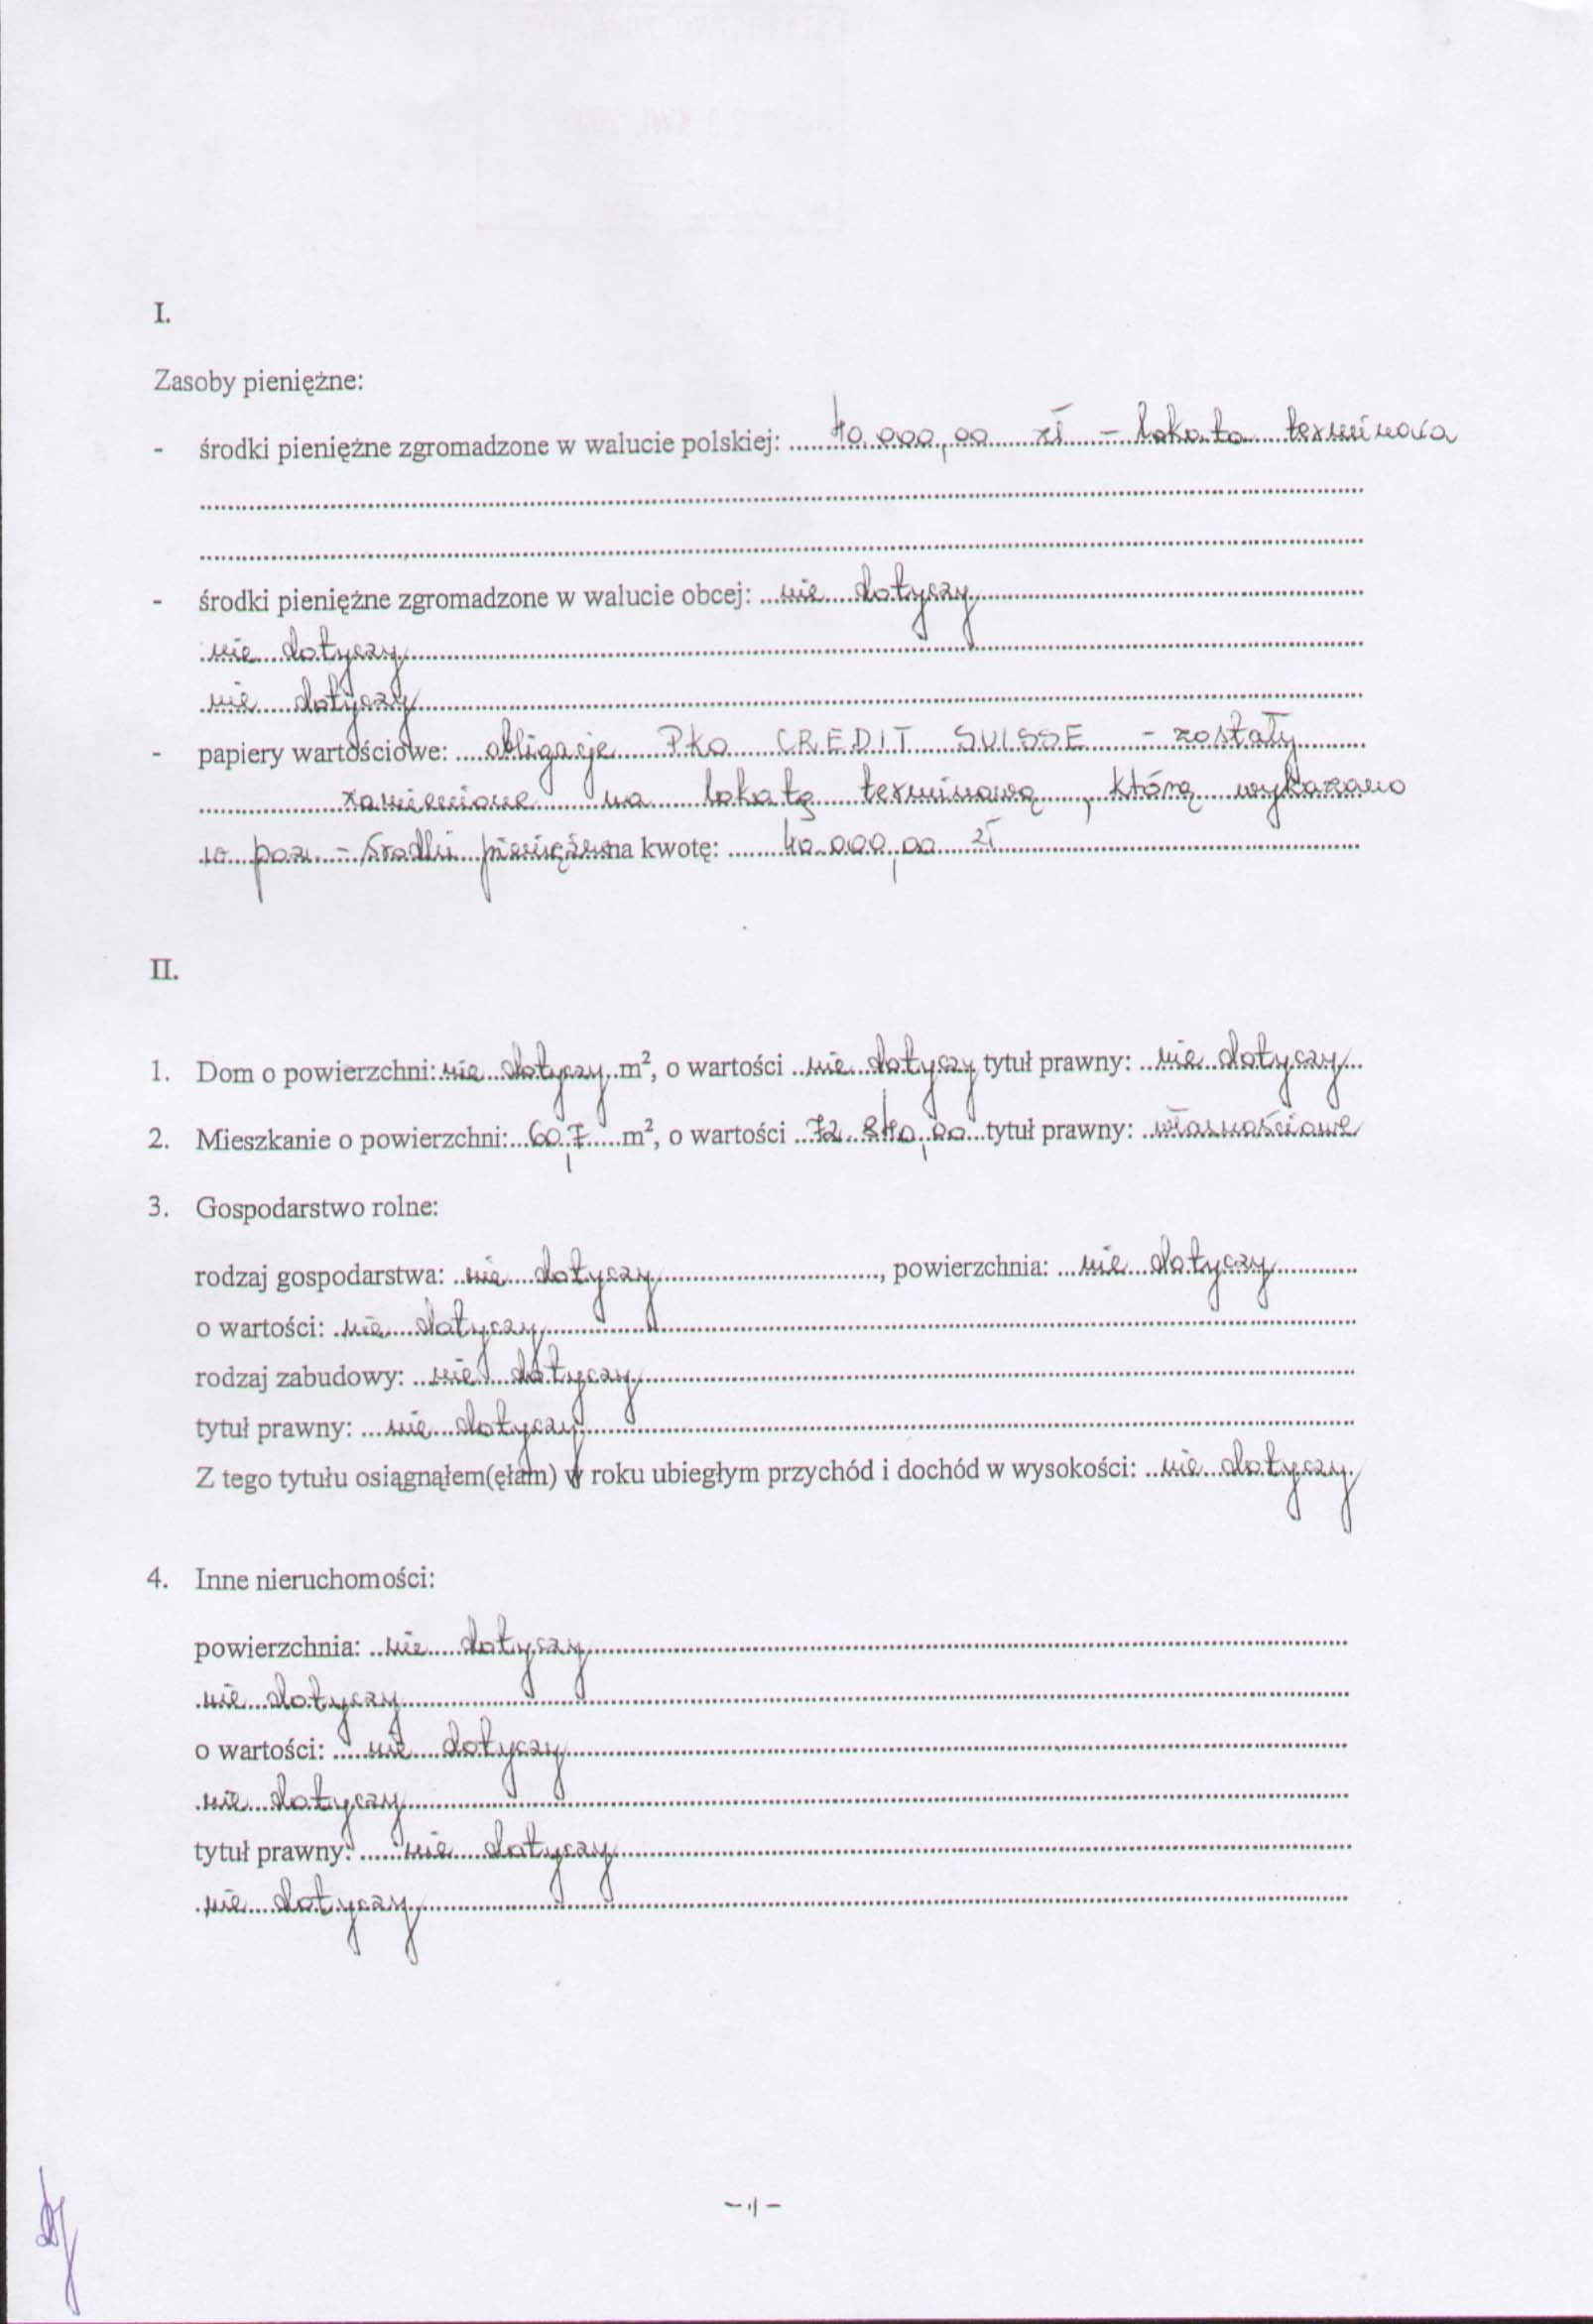 I.
Zasoby pieniężne:
- środki pieniężne zgromadzone w walucie polskiej: 40.000,00 zł – lokata terminowa
- środki pieniężne zgromadzone w walucie obcej: nie dotyczy
nie dotyczy
nie dotyczy
- papiery wartościowe: obligacje PKO CREDIT SUISSE - zostały
zamienione na lokatę terminową, którą wykazano
w poz. - środki pieniężne na kwotę: 40.000,00 zł
II.
1. Dom o powierzchni: nie dotyczy m², o wartości nie dotyczy tytuł prawny: nie dotyczy
2. Mieszkanie o powierzchni: 60,7 m², o wartości 72.840,00 tytuł prawny: własnościowe
3. Gospodarstwo rolne:
rodzaj gospodarstwa: nie dotyczy, powierzchnia: nie dotyczy
o wartości: nie dotyczy
rodzaj zabudowy: nie dotyczy
tytuł prawny: nie dotyczy
Z tego tytułu osiągnąłem(ęłam) w roku ubiegłym przychód i dochód w wysokości: nie dotyczy
4. Inne nieruchomości:
powierzchnia: nie dotyczy
nie dotyczy
o wartości: nie dotyczy
nie dotyczy
tytuł prawny: nie dotyczy
nie dotyczy